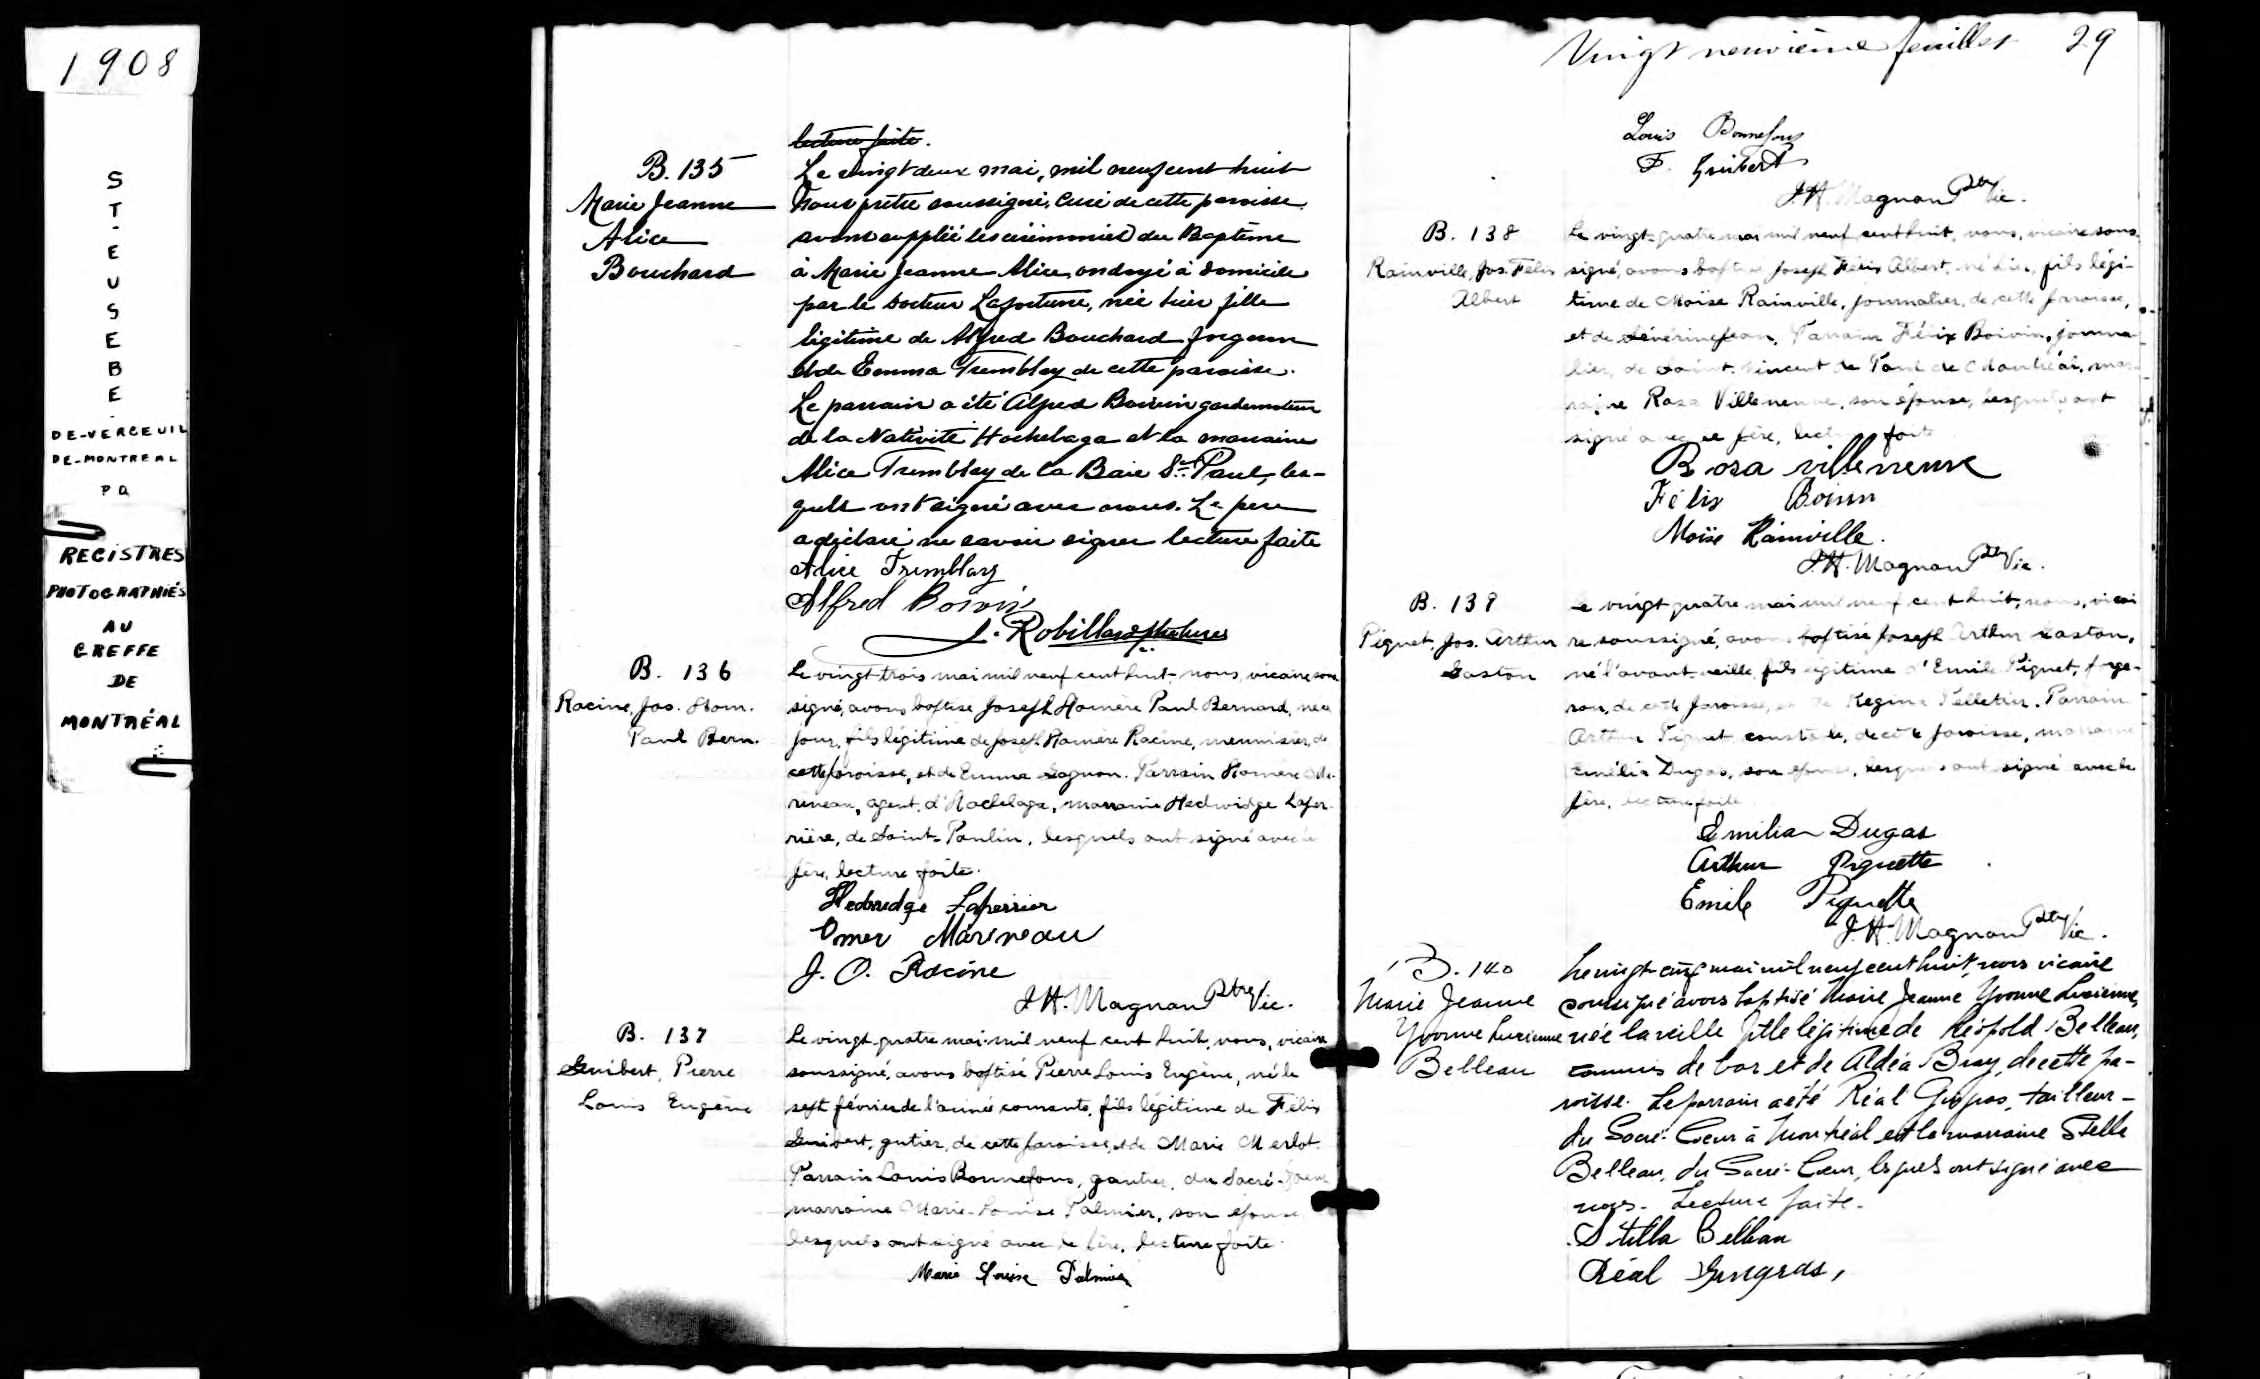 1908
ST-EUSEBE
DE-VERCEUIL
DE-MONTREAL
PQ
REGISTRES
PHOTOGRAPHIÉS
AU
GREFFE
DE
MONTRÉAL
lecture faite.
B. 135
Marie Jeanne
Alice
Bouchard
Le vingt deux mai, mil neuf cent huit
Nous prêtre soussigné, Curé de cette paroisse
avons supplié les cérémonies du Baptême
à Marie Jeanne Alice, ondoyé à domicile
par le Docteur Lafortune, née hier fille
légitime de Alfred Bouchard forgeron
et de Emma Tremblay de cette paroisse.
Le parrain a été Alfred Boivin gardemoteur
de la Nativité Hochelaga et la marraine
Alice Tremblay de la Baie St Paul, les-
quels ont signé avec nous. Le père
a déclaré ne savoir signer lecture faite
Alice Tremblay
Alfred Boivin
J. Robillard
B. 136
Racine, Jos. Hom.
Paul Bern.
Le vingt-trois mai mil neuf cent huit, nous, vicaire sous
signé, avons baptisé Joseph Homère Paul Bernard, né ce
jour, fils légitime de Joseph Homère Racine, menuisier, de
cette paroisse, et de Emma Gagnon. Parrain Homère Ma-
rineau, agent, d'Hochelaga, marraine Hedwidge Lafer-
rière, de Saint-Paulin, lesquels ont signé avec le
père, lecture faite.
Hedwidge Laferrier
Omer Marineau
J. O. Racine
J. H. Magnan Ptre Vic.
B. 137
Guibert, Pierre
Louis Eugène
Le vingt-quatre mai mil neuf cent huit, nous, vicaire
soussigné, avons baptisé Pierre Louis Eugène, né le
sept février de l'année courante, fils légitime de Félix
Guibert, gantier, de cette paroisse, et de Marie Merlot.
Parrain Louis Bonnefous, gantier, du Sacré-Coeur
marraine Marie-Louise Palmier, son épouse
lesquels ont signé avec le père, lecture faite.
Marie Louise Palmier
Vingt neuvième feuillet 29
Louis Bonnefous
F. Guibert
J. H. Magnan Ptre Vic.
B. 138
Rainville, Jos. Félix
Albert
Le vingt-quatre mai mil neuf cent huit, nous, vicaire sous-
signé, avons baptisé Joseph Félix Albert, né hier, fils légi-
time de Moïse Rainville, journalier, de cette paroisse,
et de Séverine Jean. Parrain Félix Boivin, journa-
lier, de Saint-Vincent de Paul de Montréal, mar-
raine Rosa Villeneuve, son épouse, lesquels ont
signé avec le père, lecture faite
Rosa villeneuve
Félix Boivin
Moïse Rainville.
J. H. Magnan Ptre Vic.
B. 139
Piquet, Jos. Arthur
Gaston
Le vingt quatre mai mil neuf cent huit, nous, vicai
re soussigné, avons baptisé Joseph Arthur Gaston,
né l'avant-veille, fils légitime d'Emile Piquet, forge-
ron, de cette paroisse, et de Regina Pelletier. Parrain
Arthur Piquet constable, de cette paroisse, marraine
Emélia Dugas, son épouse, lesquels ont signé avec le
père, lecture faite.
Emilia Dugas
Arthur Piquette
Emile Piquette
J. H. Magnan Ptre Vic.
B. 140
Marie Jeanne
Yvonne Lucienne
Belleau
Le vingt-cinq mai mil neuf cent huit, nous vicaire
soussigné avons baptisé Marie Jeanne Yvonne Lucienne,
née la veille fille légitime de Léopold Belleau,
commis de bar et de Aldéa Bray, de cette pa-
roisse. Le parrain a été Réal Gingras, tailleur-
du Sacré-Coeur à Montréal et la marraine Stella
Belleau, du Sacré-Coeur, lesquels ont signé avec
nous. Lecture faite.
Stella Belleau
Réal Gingras,